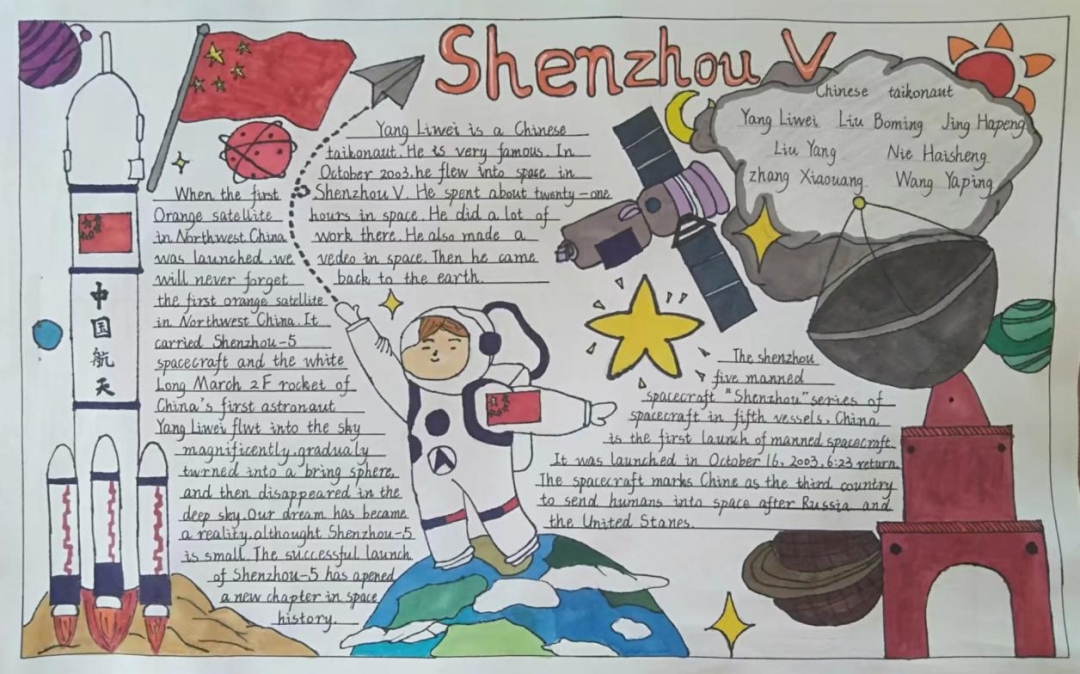 Shenzhou V
Yang Liwei is a Chinese
taikonaut. He is very famous. In
October 2003. he flew into space in
Shenzhou V. He spent about twenty-one
hours in space. He did a lot of
work there. He also made a
vedeo in space. Then he came
back to the earth.
Chinese taikonaut
Yang Liwei Liu Boming Jing Hapeng
Liu Yang Nie Haisheng
zhang Xiaouang Wang Yaping
When the first
Orange satellite
in Northwest China
was launched, we
will never forget
the first orange satellite
in Northwest China. It
carried Shenzhou-5
spacecraft and the white
Long March 2F rocket of
China's first astronaut
Yang Liwei flwt into the sky
magnificently, gradualy
turned into a bring sphere,
and then disappeared in the
deep sky. Our dream has became
a reality. althought Shenzhou-5
is small. The successful launch
of Shenzhou-5 has apened
a new chapter in space
history.
中
国
航
天
The shenzhou
five manned
spacecraft "Shenzhou" series of
spacecraft in fifth vessels. China
is the first launch of manned spacecraft.
It was launched in October 16, 2003, 6:23 return.
The spacecraft marks Chine as the third country
to send humans into space after Russia and
the United Stanes.